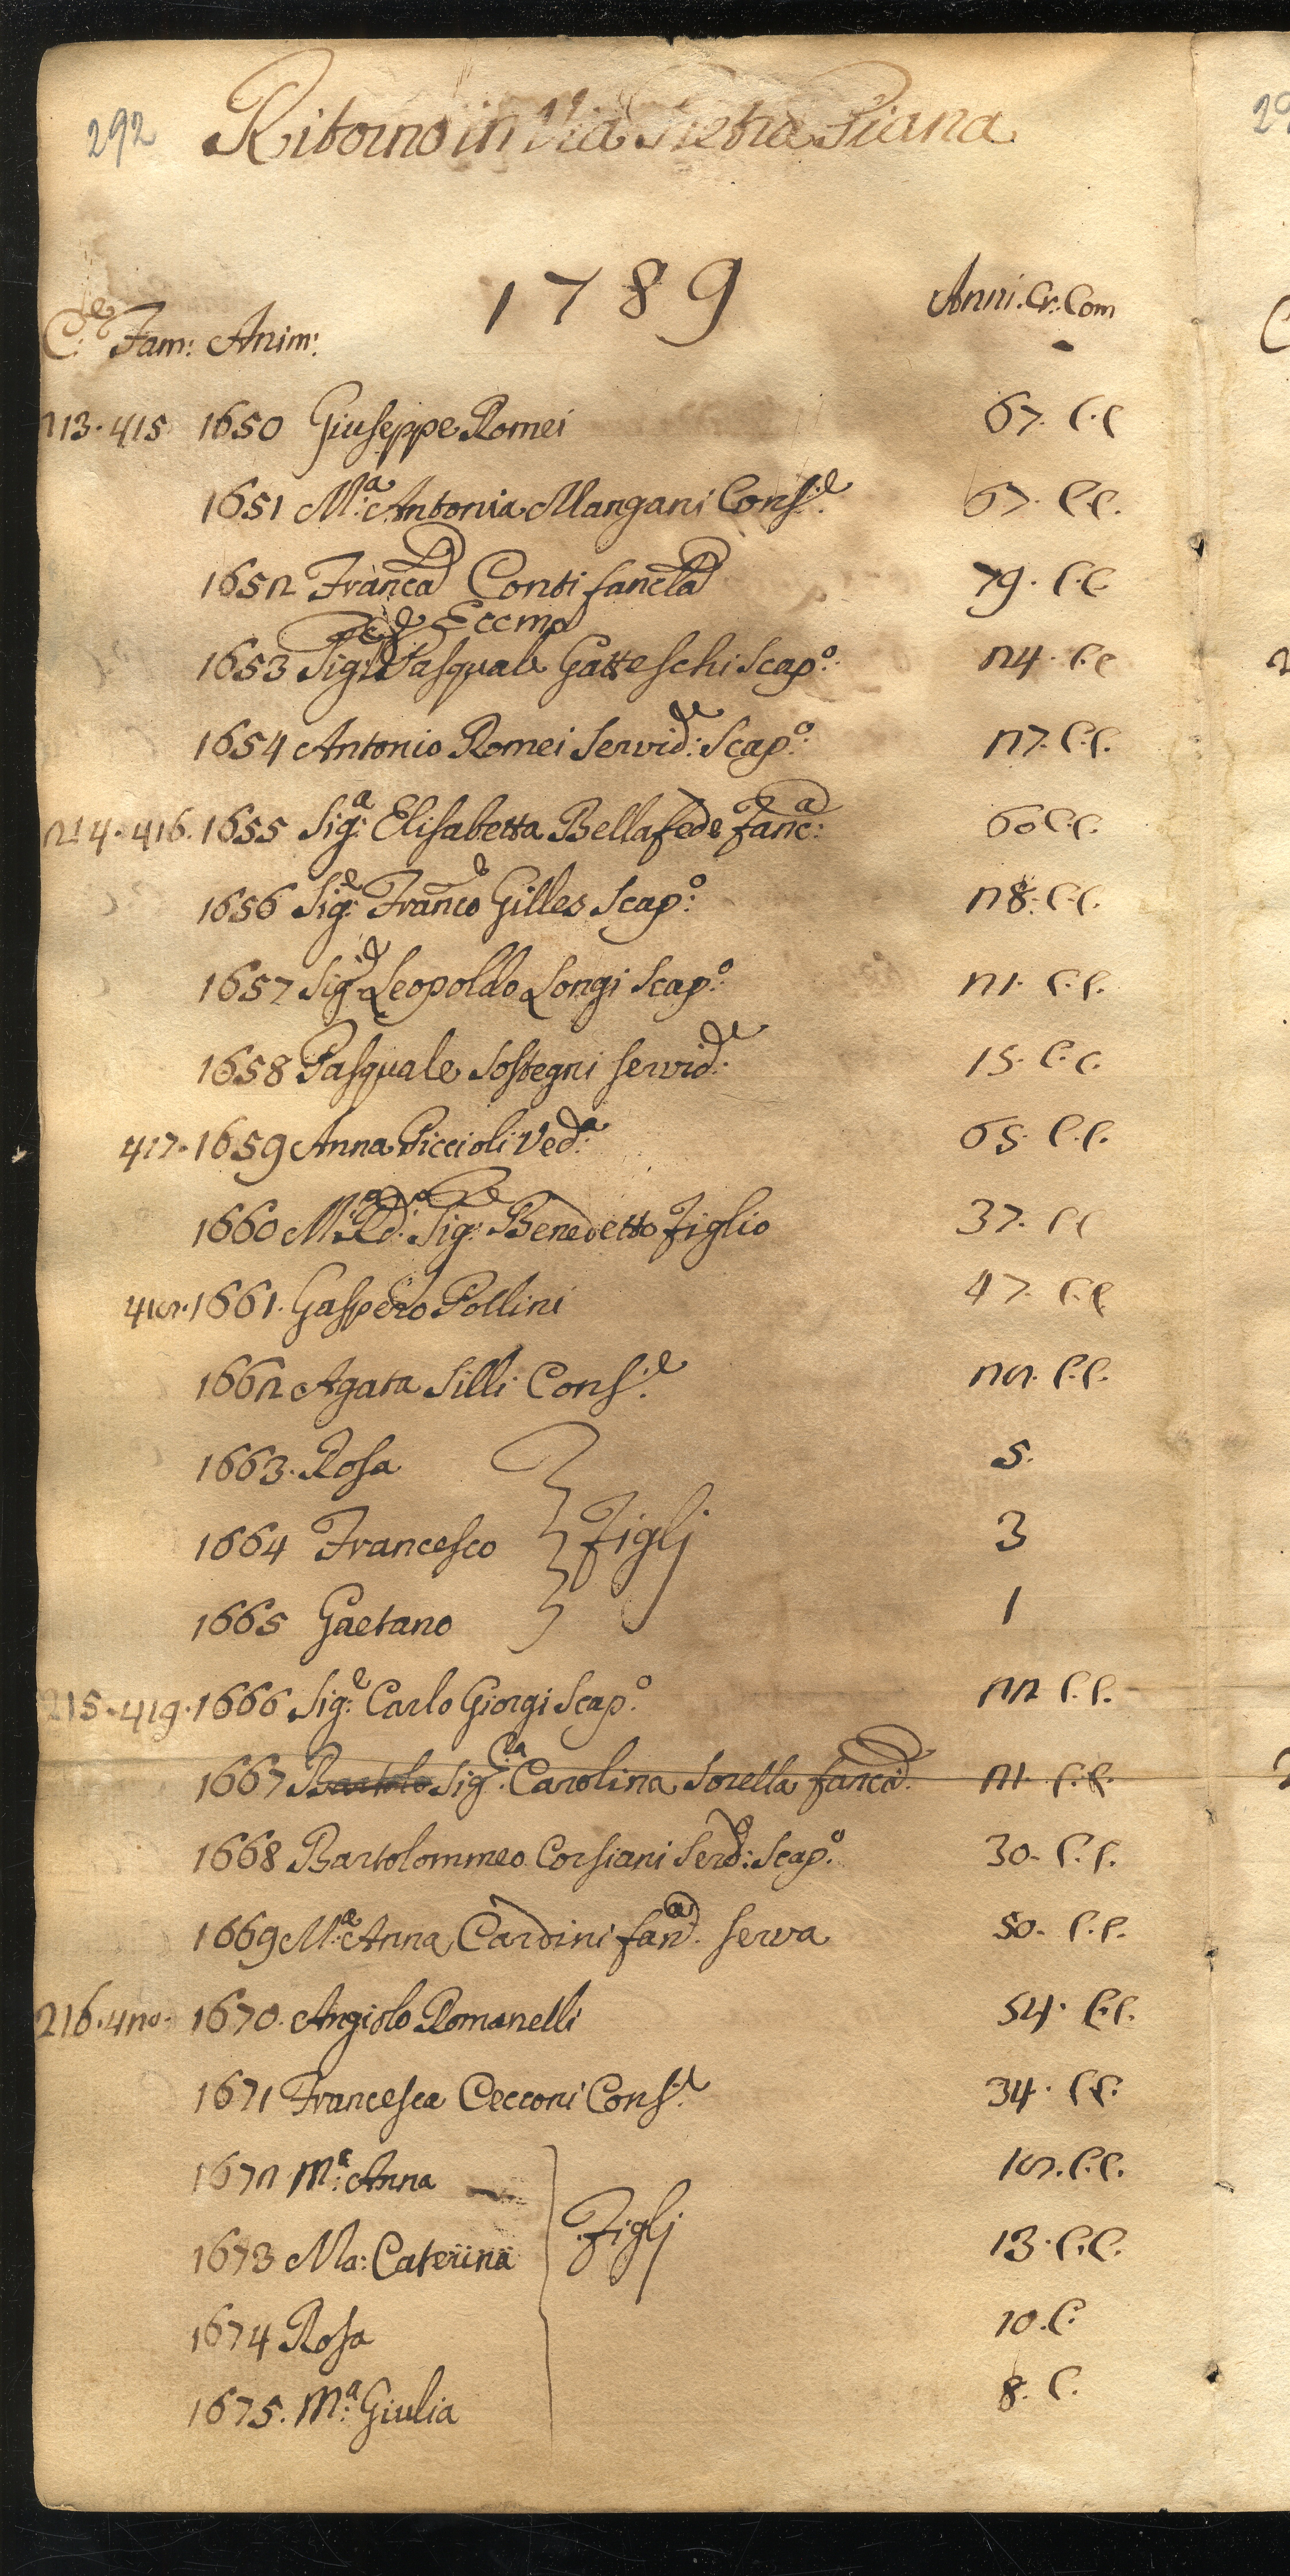 292
Ritorno in Via Pietra Piana
1789
C:e Fam: Anim:
Anni. Cr: Com
213. 415 1650 Giuseppe Romei 67. C.C
1651 M:a Antonia Mangani Cons:e 67. C.C.
1652 Franc:a Conti fanc:la 79. C.C
Eccmo
1653 Sig:e Pasquale Gatteschi Scap:o 24. C.C
1654 Antonio Romei Servid:e Scap:o 27. C.C.
214. 416. 1655 Sig:a Elisabetta Bellafede Fanc:a 60 C.C.
1656 Sig:e Franco Gilles Scap:o 28. C.C.
1657 Sig:e Leopoldo Longi Scap:o 21. C.C.
1658 Pasquale Sostegni Servid:e 15. C.C.
417. 1659 Anna Piccioli Ved:a 65. C.C.
1660 M:o Rd:o Sig:e Benedetto Figlio 37. C.C
418. 1661. Gaspero Pollini 47. C.C
1662 Agata Silli Cons:e 28. C.C.
1663. Rosa 5.
1664 Francesco Figlj 3
1665 Gaetano 1
215. 419. 1666 Sig:e Carlo Giorgi Scap:o 22 C.C.
1667 Bartolo Sig:ra Carolina Sorella fanc:a 21. C.C.
1668 Bartolommeo Corsiani Serd:e Scap:o 30. C.C.
1669 M:a Anna Cardini fan:a Serva 50. C.C.
216. 420. 1670. Angiolo Romanelli 54. C.C.
1671 Francesca Cecconi Cons:e 34. C.C.
1672 M:a Anna 18. C.C.
Figlj
1673 Ma: Caterina 13. C.C.
1674 Rosa 10. C.
1675. M:a Giulia 8. C.